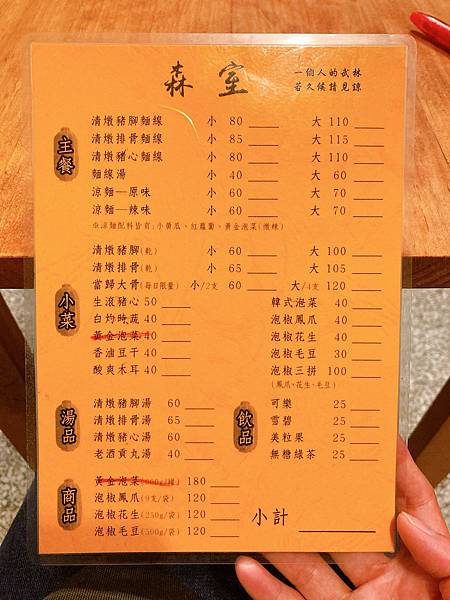 森室
一個人的武林
若久候請見諒
主餐
清燉豬腳麵線 小 80 大 110
清燉排骨麵線 小 85 大 115
清燉豬心麵線 小 80 大 110
麵線湯 小 40 大 60
涼麵—原味 小 60 大 70
涼麵—辣味 小 60 大 70
※涼麵配料皆有:小黃瓜、紅蘿蔔、黃金泡菜(微辣)
小菜
清燉豬腳(乾) 小 60 大 100
清燉排骨(乾) 小 65 大 105
當歸大骨(每日限量) 小/2支 60 大/4支 120
生滾豬心 50
白灼時蔬 40
黃金泡菜 40
香油豆干 40
酸爽木耳 40
韓式泡菜 40
泡椒鳳爪 40
泡椒花生 40
泡椒毛豆 30
泡椒三拼 100
(鳳爪、花生、毛豆)
湯品
清燉豬腳湯 60
清燉排骨湯 65
清燉豬心湯 60
老酒貢丸湯 40
飲品
可樂 25
雪碧 25
美粒果 25
無糖綠茶 25
商品
黃金泡菜 180
泡椒鳳爪(9支/袋) 120
泡椒花生(250g/袋) 120
泡椒毛豆(500g/袋) 120
小計